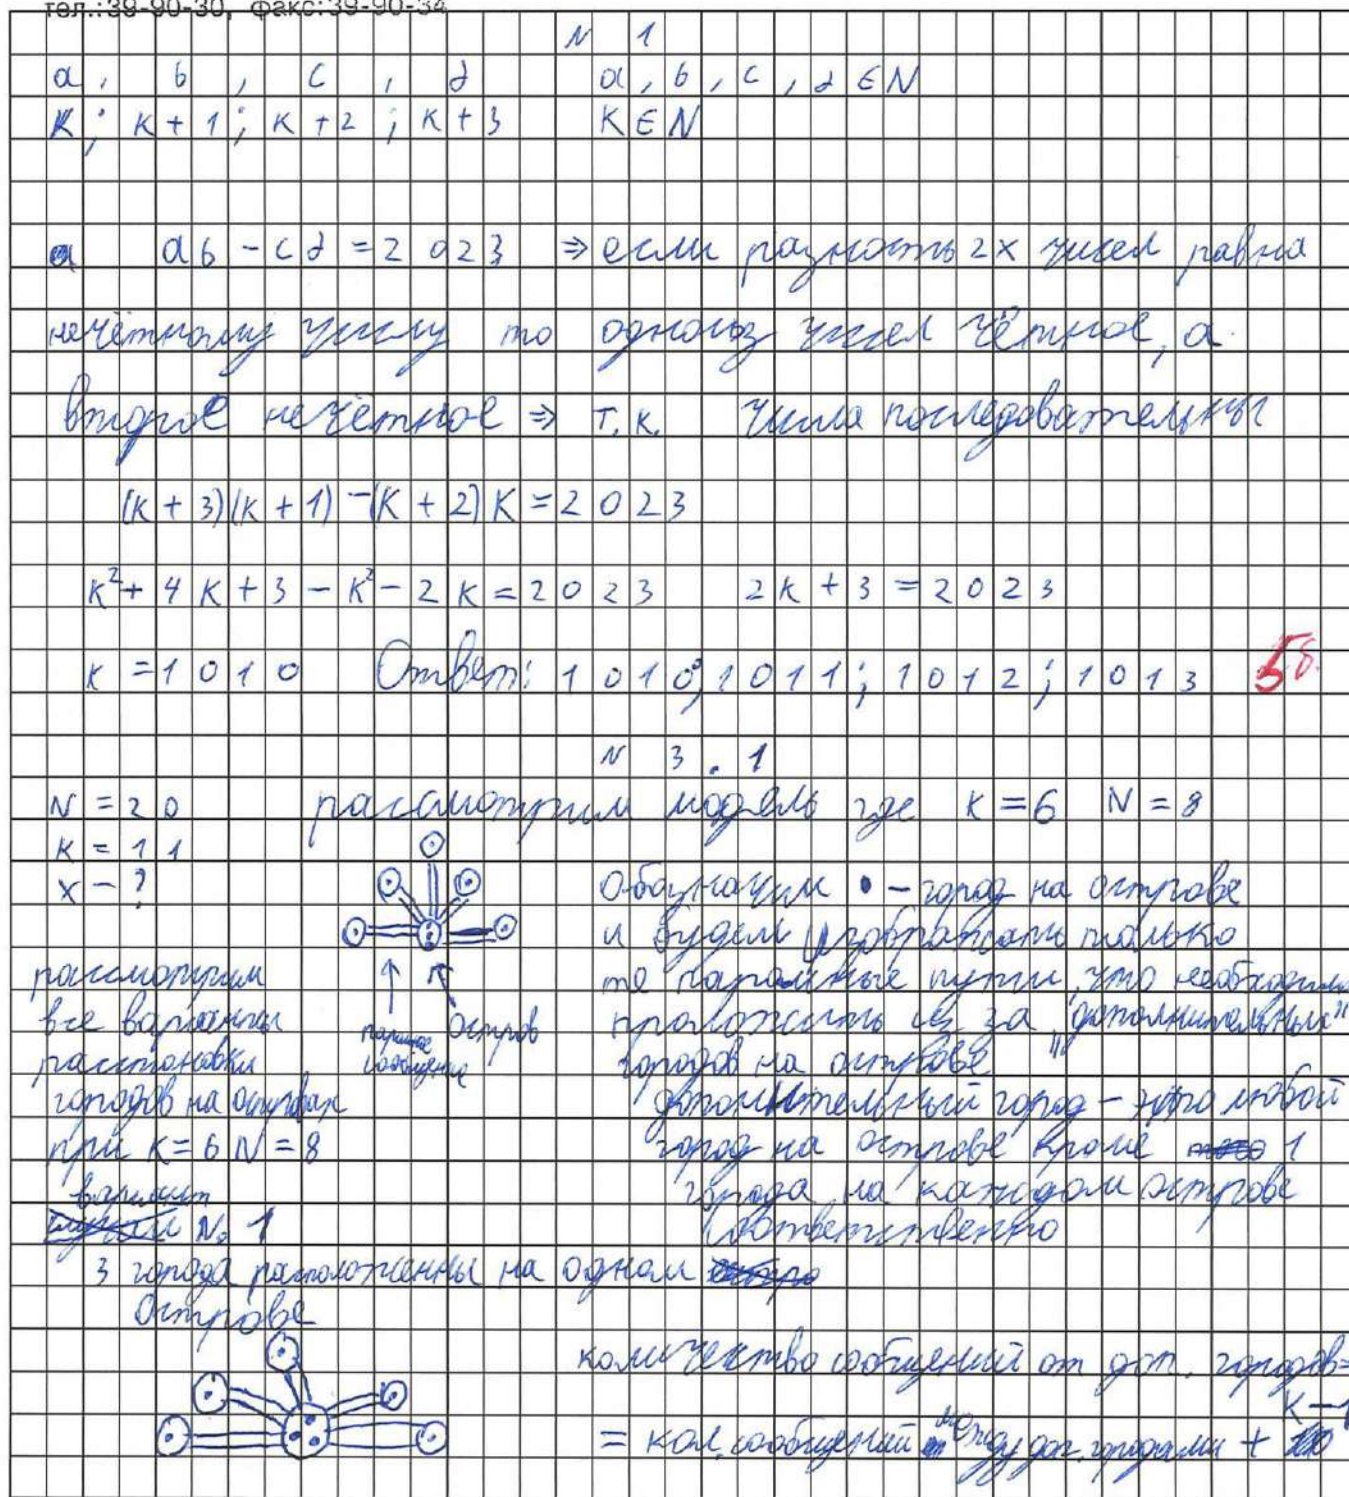 тел.:39-90-30, факс:39-90-34
N 1
a, b, c, d a, b, c, d ∈ N
K; K+1; K+2; K+3 K ∈ N
ab - cd = 2023 ⇒ если разность 2х чисел равна
нечётному числу то одно из чисел чётное, а
второе нечётное ⇒ т.к. числа последовательны
(K+3)(K+1) - (K+2)K = 2023
K²+4K+3-K²-2K=2023 2K+3=2023
K=1010 Ответ: 1010; 1011; 1012; 1013 5б.
N 3.1
N=20 рассмотрим модель где K=6 N=8
K=11
x-?
Обозначим • - город на острове
и будем изображать только
те паромные пути, что необходимо
проложить из за "дополнительных"
городов на острове
дополнительный город - это любой
город на острове кроме 1
города на каждом острове
соответственно
рассмотрим
все варианты
расстановки
городов на островах
при K=6 N=8
паромное сообщение
Остров
вариант
№1
3 города расположенны на одном
Острове
количество сообщений от доп. городов=
= кол. сообщений между доп. городами + K-1